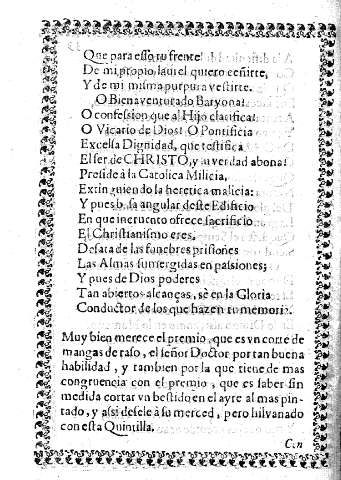 Que para esso tu frente
De mi propio laurel quiero ceñirte,
Y de mi misma purpura vestirte.
O Bienaventurado Baryona!
O confession que al Hijo clarifica!
O Vicario de Dios! O Pontificia
Excelsa Dignidad, que testifica
El ser de CHRISTO, y su verdad abona!
Preside à la Catolica Milicia,
Extinguiendo la heretica malicia:
Y pues basa angular deste Edificio
En que incruento ofrece sacrificio
El Christianismo eres,
Desata de las funebres prisiones
Las Almas sumergidas en passiones;
Y pues de Dios poderes
Tan abiertos alcanças, sè en la Gloria
Conductor de los que hazen tu memoria.
Muy bien merece el premio, que es vn corte de
mangas de raso, el señor Doctor por tan buena
habilidad, y tambien por la que tiene de mas
congruencia con el premio, que es saber sin
medida cortar vn bestido en el ayre al mas pin-
tado, y assi desele à su merced, pero hilvanado
con esta Quintilla.
Con